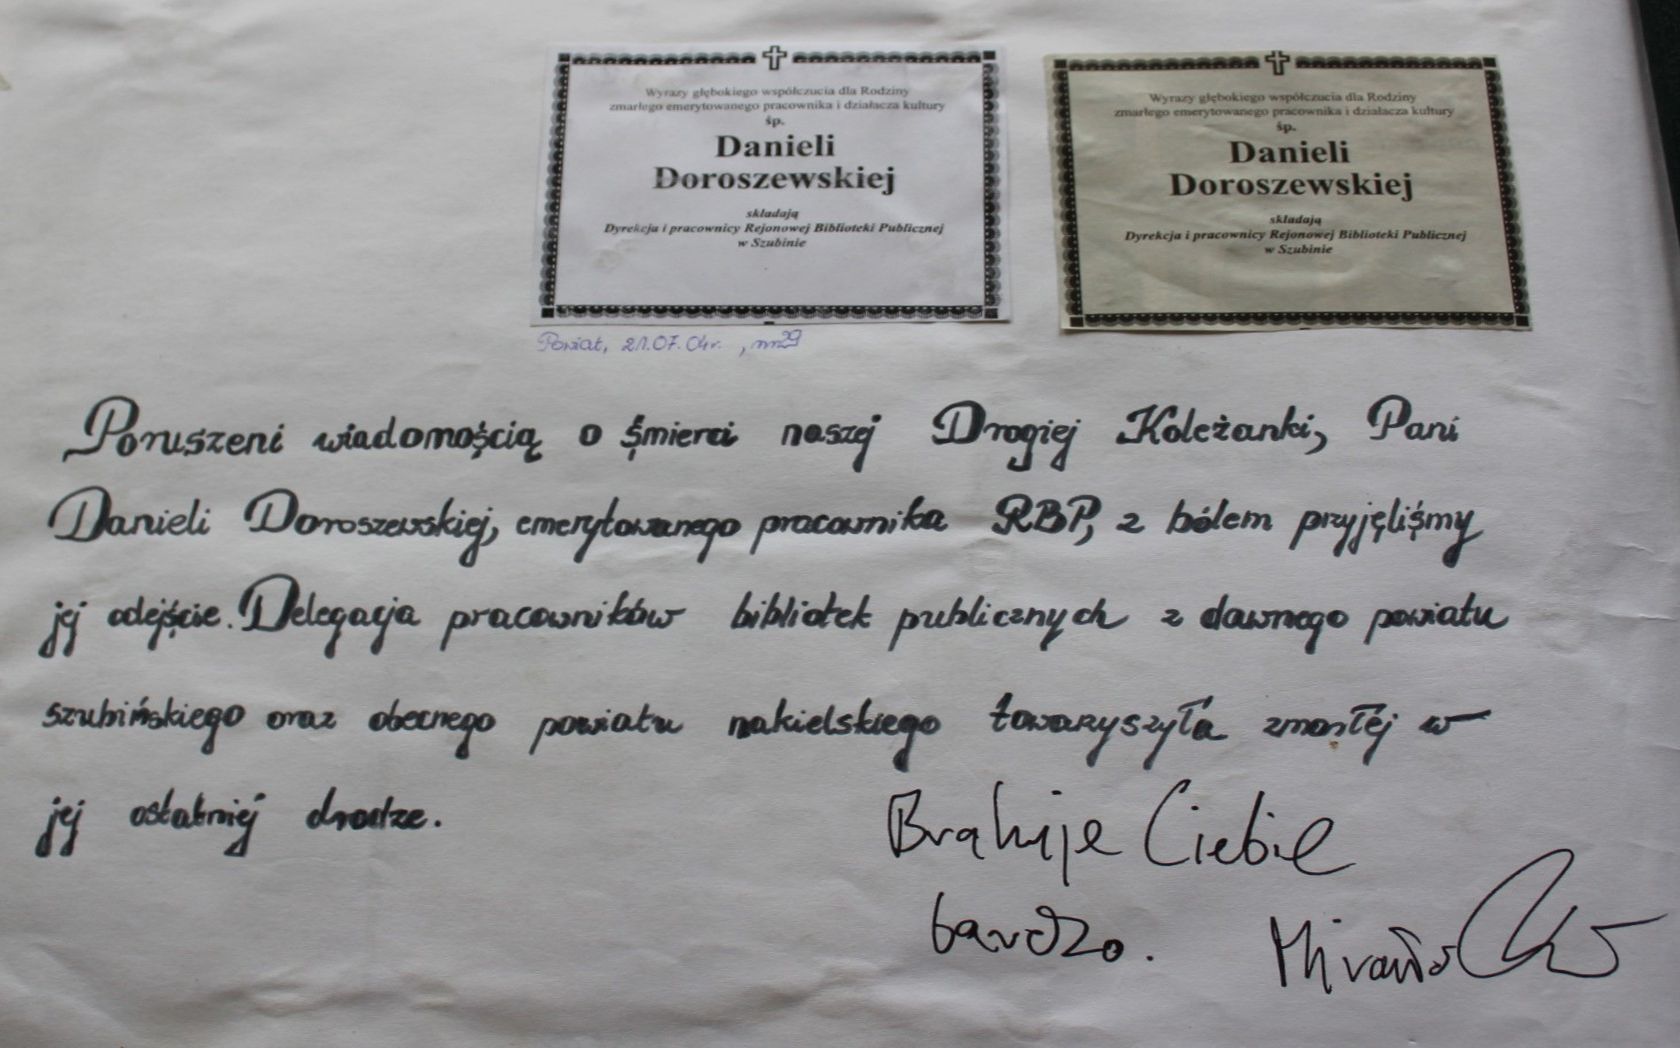 Wyrazy głębokiego współczucia dla Rodziny
zmarłego emerytowanego pracownika i działacza kultury
śp.
Danieli
Doroszewskiej
składają
Dyrekcja i pracownicy Rejonowej Biblioteki Publicznej
w Szubinie
Wyrazy głębokiego współczucia dla Rodziny
zmarłego emerytowanego pracownika i działacza kultury
śp.
Danieli
Doroszewskiej
składają
Dyrekcja i pracownicy Rejonowej Biblioteki Publicznej
w Szubinie
Powiat, 21.07.04r., nr 29
Poruszeni wiadomością o śmierci naszej Drogiej Koleżanki, Pani
Danieli Doroszewskiej, emerytowanego pracownika RBP, z bólem przyjęliśmy
jej odejście. Delegacja pracowników bibliotek publicznych z dawnego powiatu
szubińskiego oraz obecnego powiatu nakielskiego towarzyszyła zmarłej w
jej ostatniej drodze.
Brakuje Ciebie
bardzo.